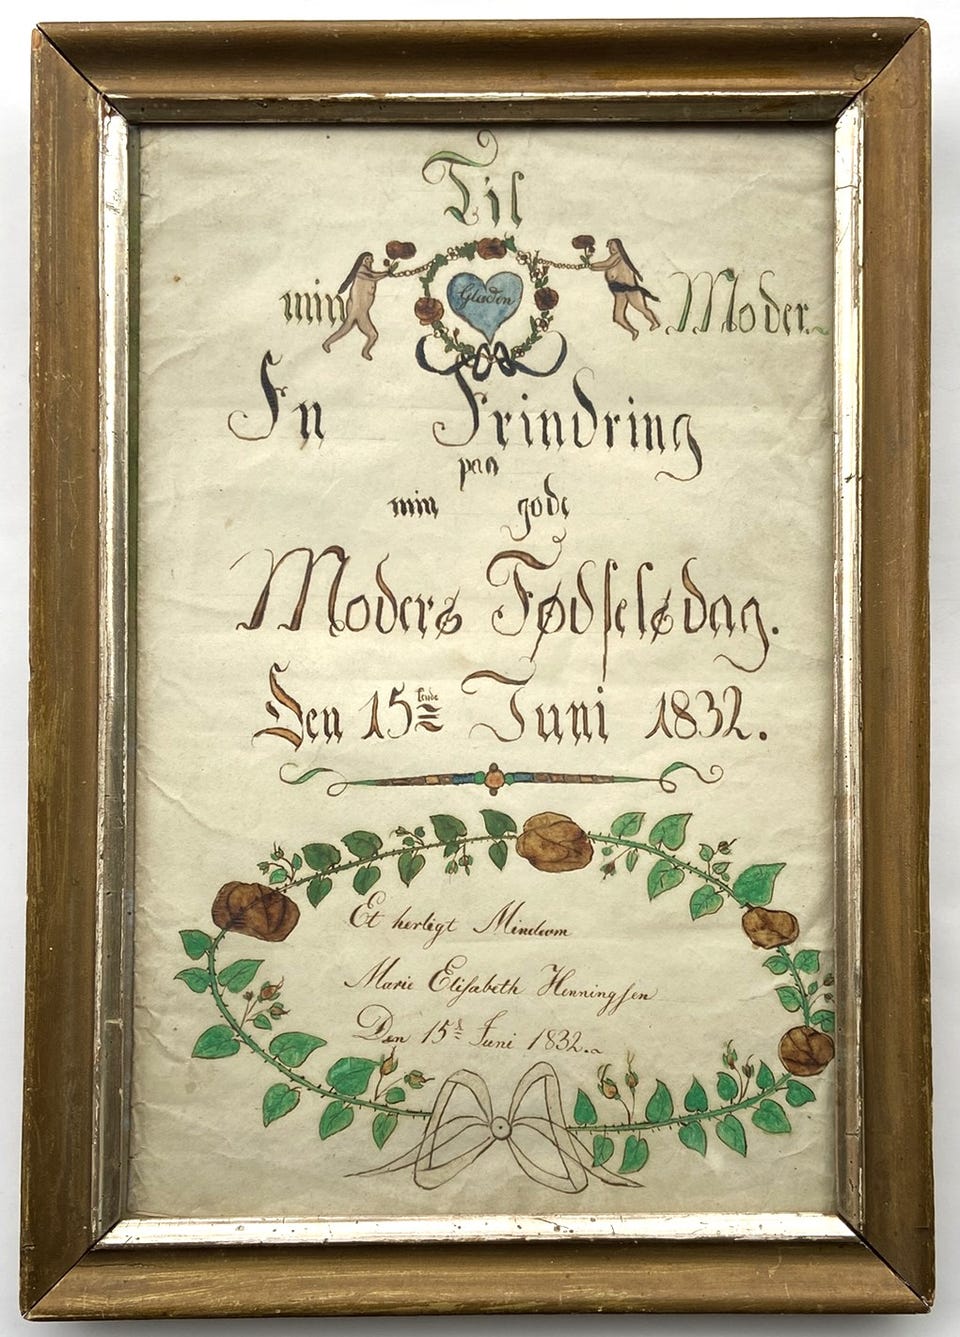 Til
min Glæden Moder.
En Erindring
paa
min gode
Moders Fødselsdag.
Den 15tende Juni 1832.
Et herligt Mindeom
Marie Elisabeth Henningsen
Den 15d Juni 1832.